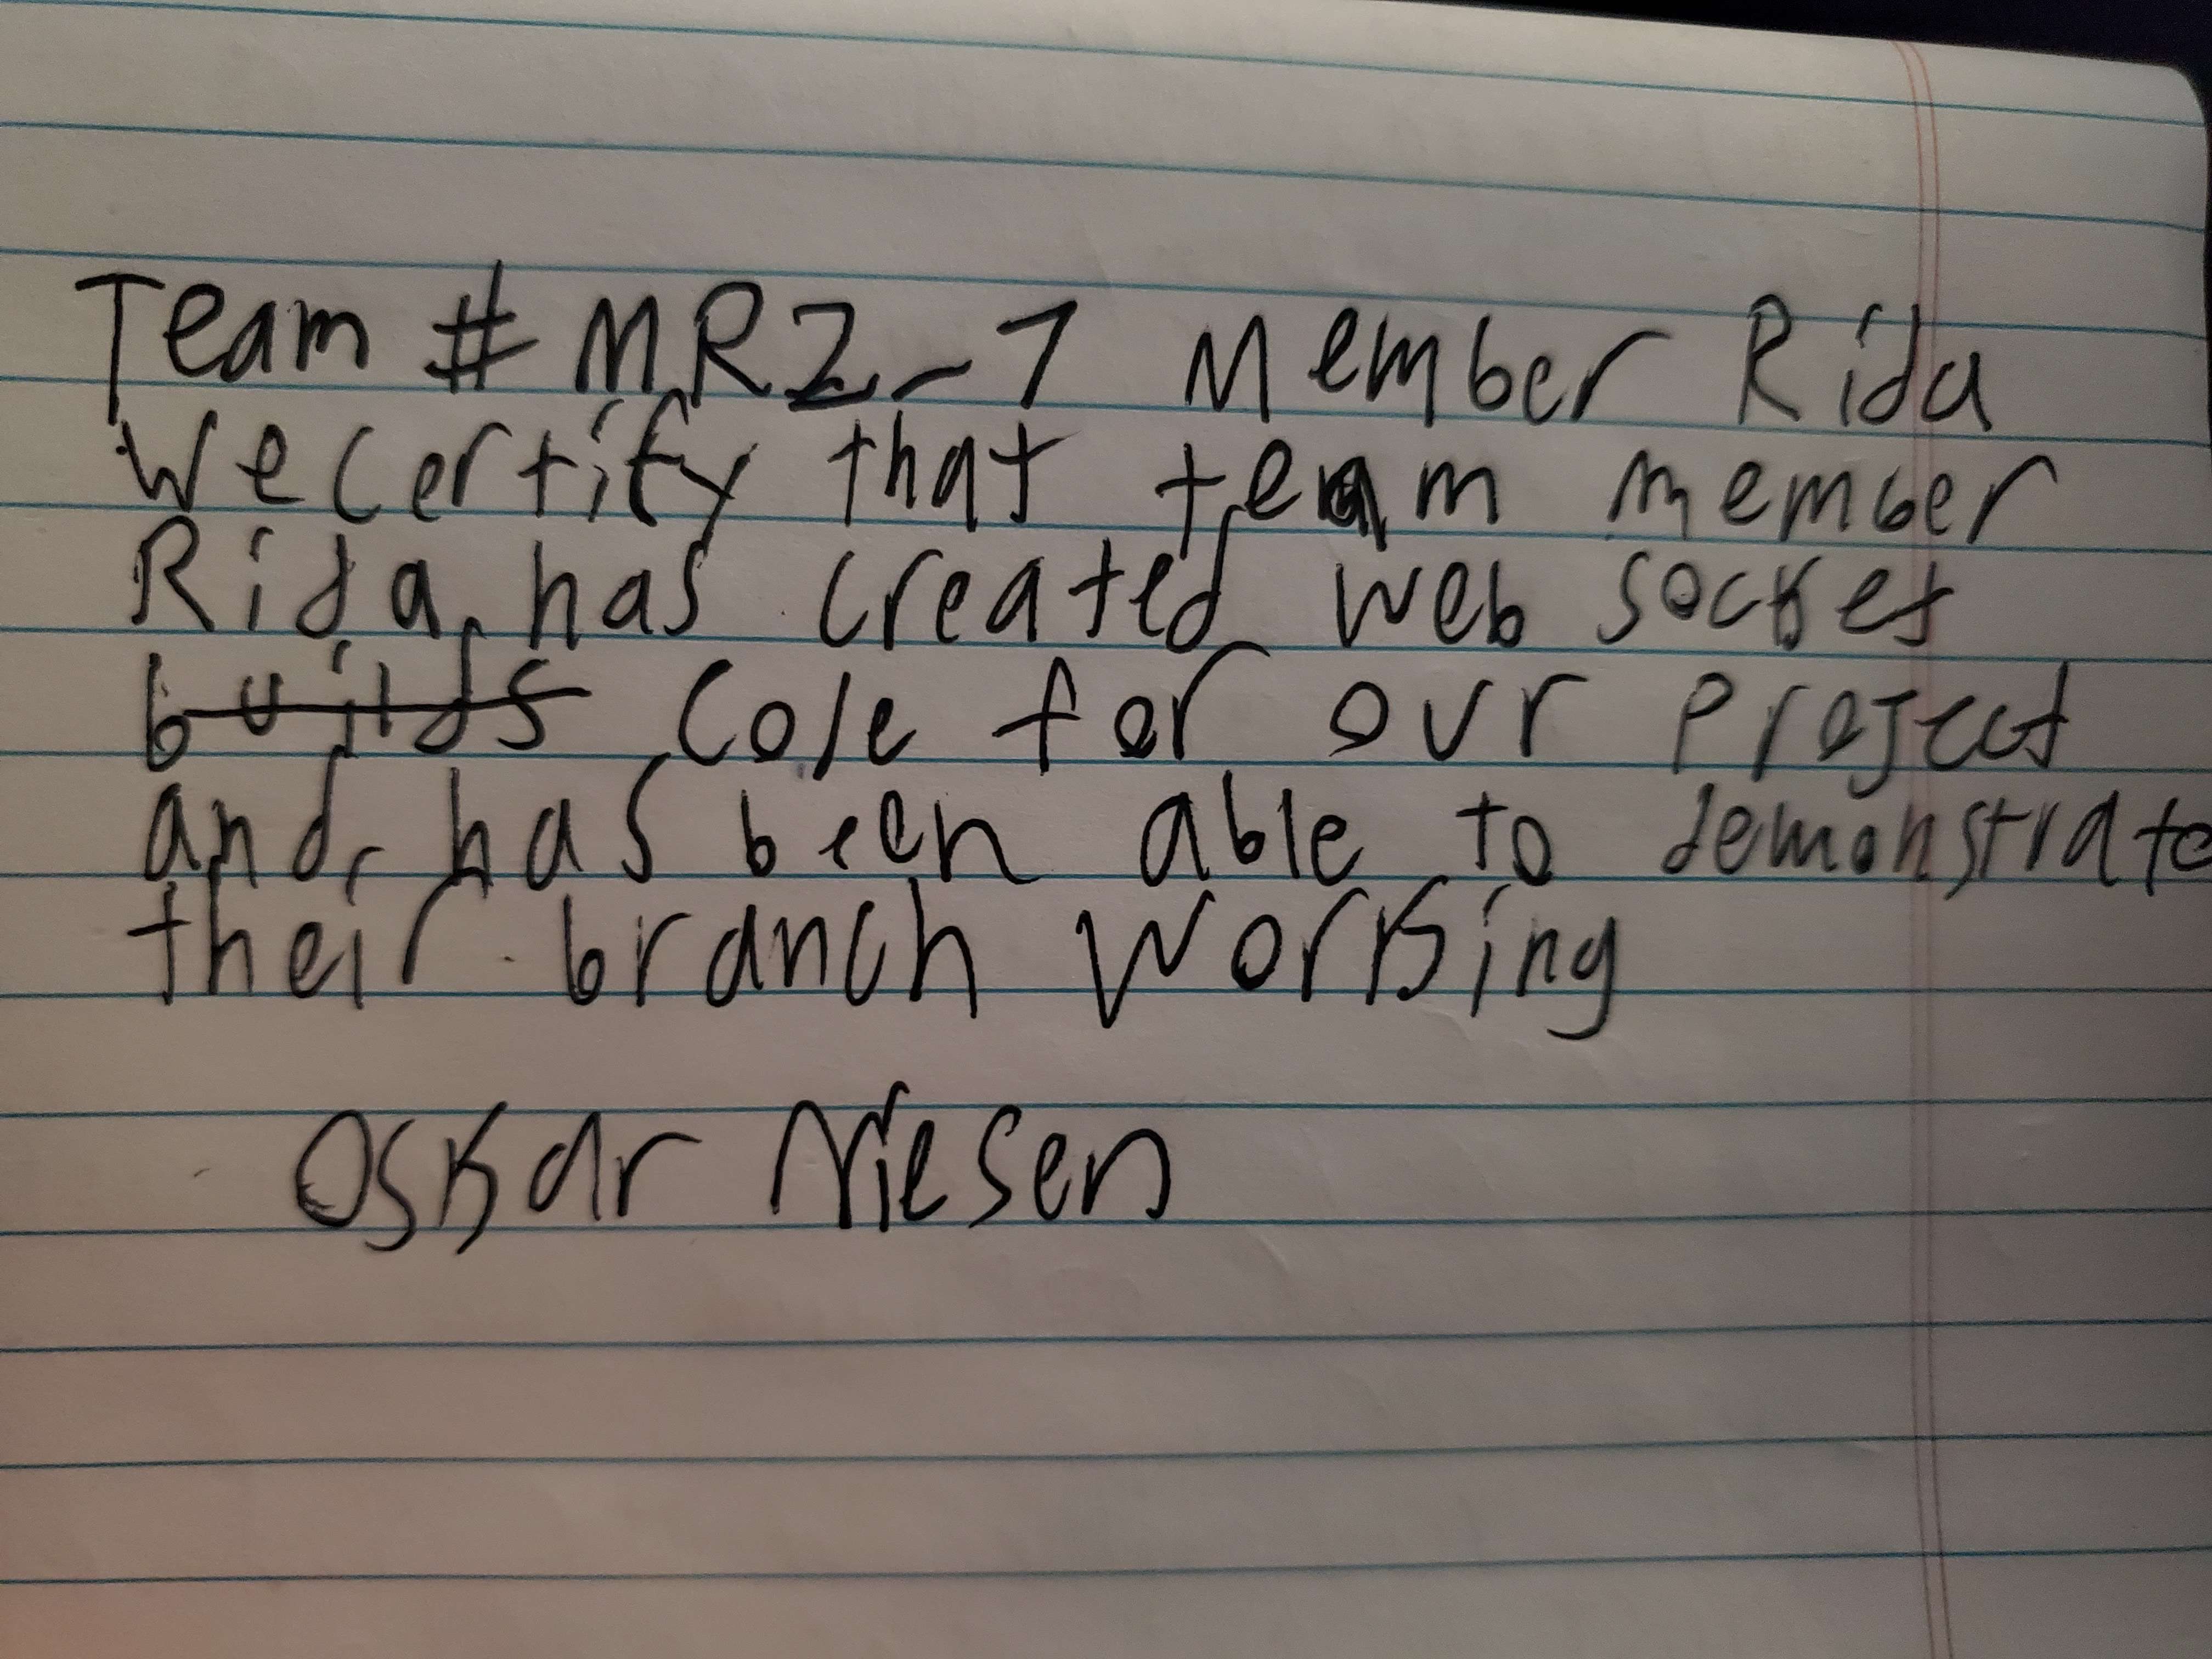 Team # MR2-7 Member Rida
We certify that team member
Rida has created web socket
builds Code for our project
and has been able to demonstrate
their branch working
Oskar Niesen